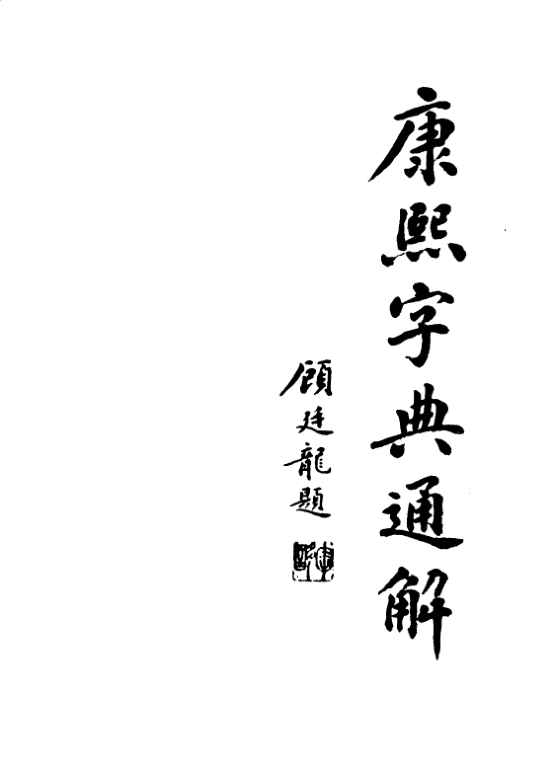 康熙字典通解
顾廷龍題